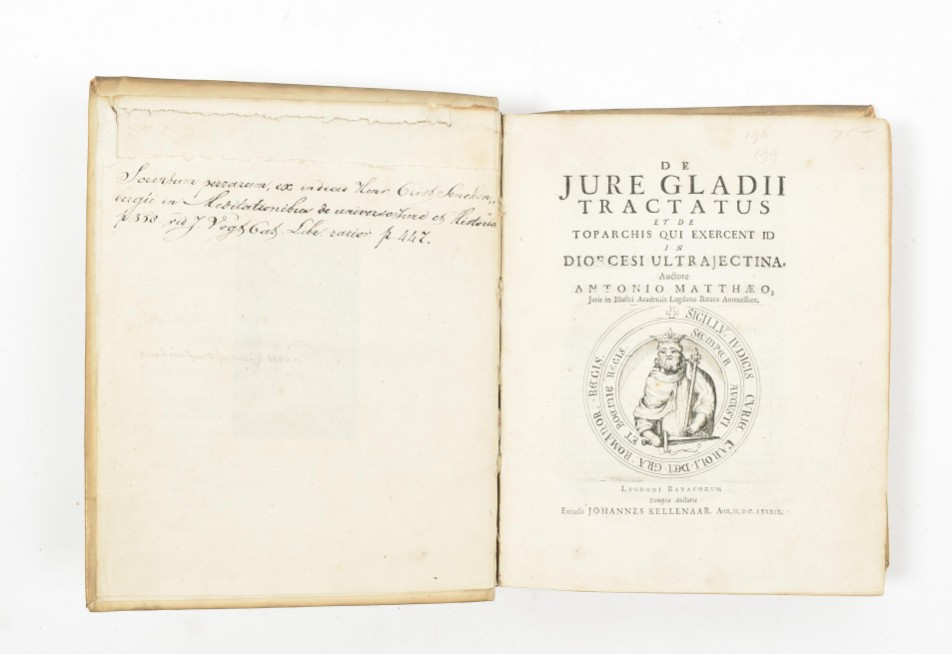 Scriptum perrarum, ex indicio Henr. Crist. Sencken-
bergii in Meditationibus de universo Jure et Historia
p. 358 J Vogt Cat. Libr. rarior p. 447.
196
199
75 -
DE
JURE GLADII
TRACTATUS
ET DE
TOPARCHIS QUI EXERCENT ID
IN
DIOECESI ULTRAJECTINA.
Auctore
ANTONIO MATTHÆO,
Juris in Illustri Academia Lugduno Batava Antecessore.
SIGILLV. IVDICIS CVRIE KAROLI. DEI. GRA. ROMANOR. REGIS.
SEMPER AVGVSTI ET BOEMIE REGIS
LUGDUNI BATAVORUM
Sumptu Auctoris
Excudit JOHANNES KELLENAAR. Ann. M. D C. LXXXIX.